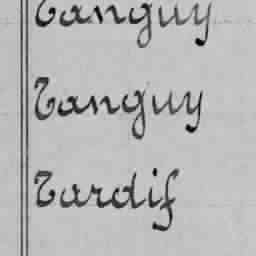 Tanguy
Tanguy
Tardif